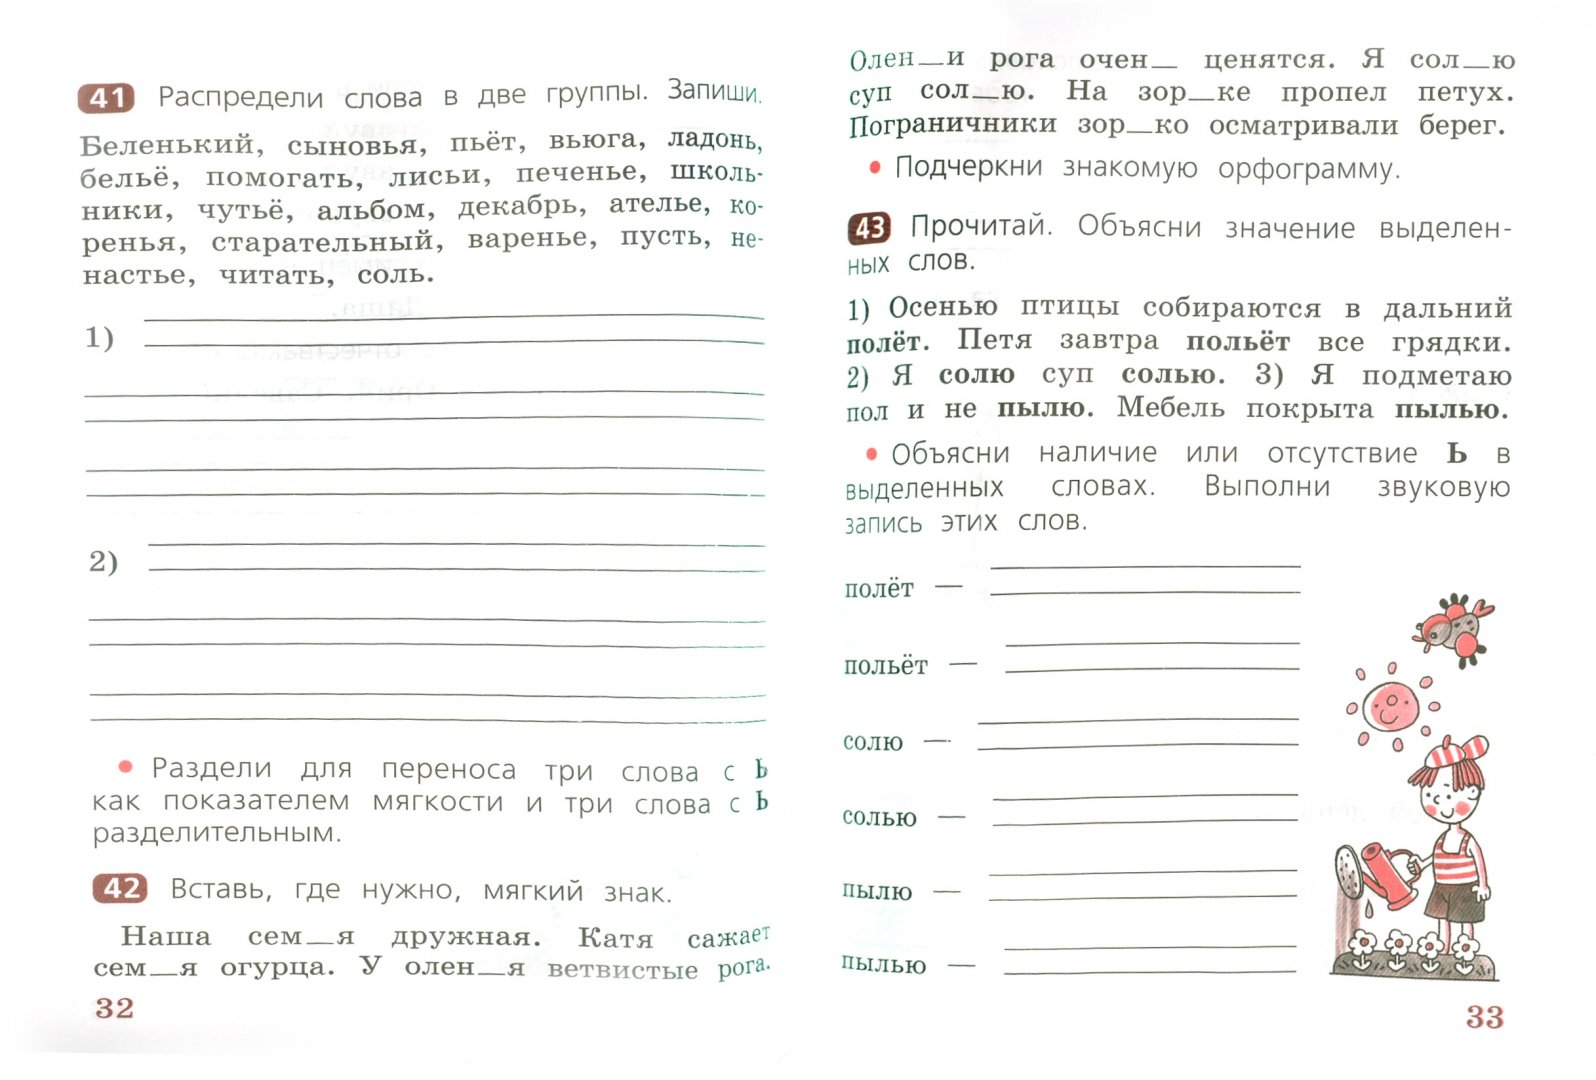 41 Распредели слова в две группы. Запиши.
Беленький, сыновья, пьёт, вьюга, ладонь,
бельё, помогать, лисьи, печенье, школь-
ники, чутьё, альбом, декабрь, ателье, ко-
ренья, старательный, варенье, пусть, не-
настье, читать, соль.
1)
2)
• Раздели для переноса три слова с Ь
как показателем мягкости и три слова с Ь
разделительным.
42 Вставь, где нужно, мягкий знак.
Наша сем__я дружная. Катя сажает
сем__я огурца. У олен__я ветвистые рога.
32
Олен__и рога очен__ ценятся. Я сол__ю
суп сол__ю. На зор__ке пропел петух.
Пограничники зор__ко осматривали берег.
• Подчеркни знакомую орфограмму.
43 Прочитай. Объясни значение выделен-
ных слов.
1) Осенью птицы собираются в дальний
полёт. Петя завтра польёт все грядки.
2) Я солю суп солью. 3) Я подметаю
пол и не пылю. Мебель покрыта пылью.
• Объясни наличие или отсутствие Ь в
выделенных словах. Выполни звуковую
запись этих слов.
полёт —
польёт —
солю —
солью —
пылю —
пылью —
33